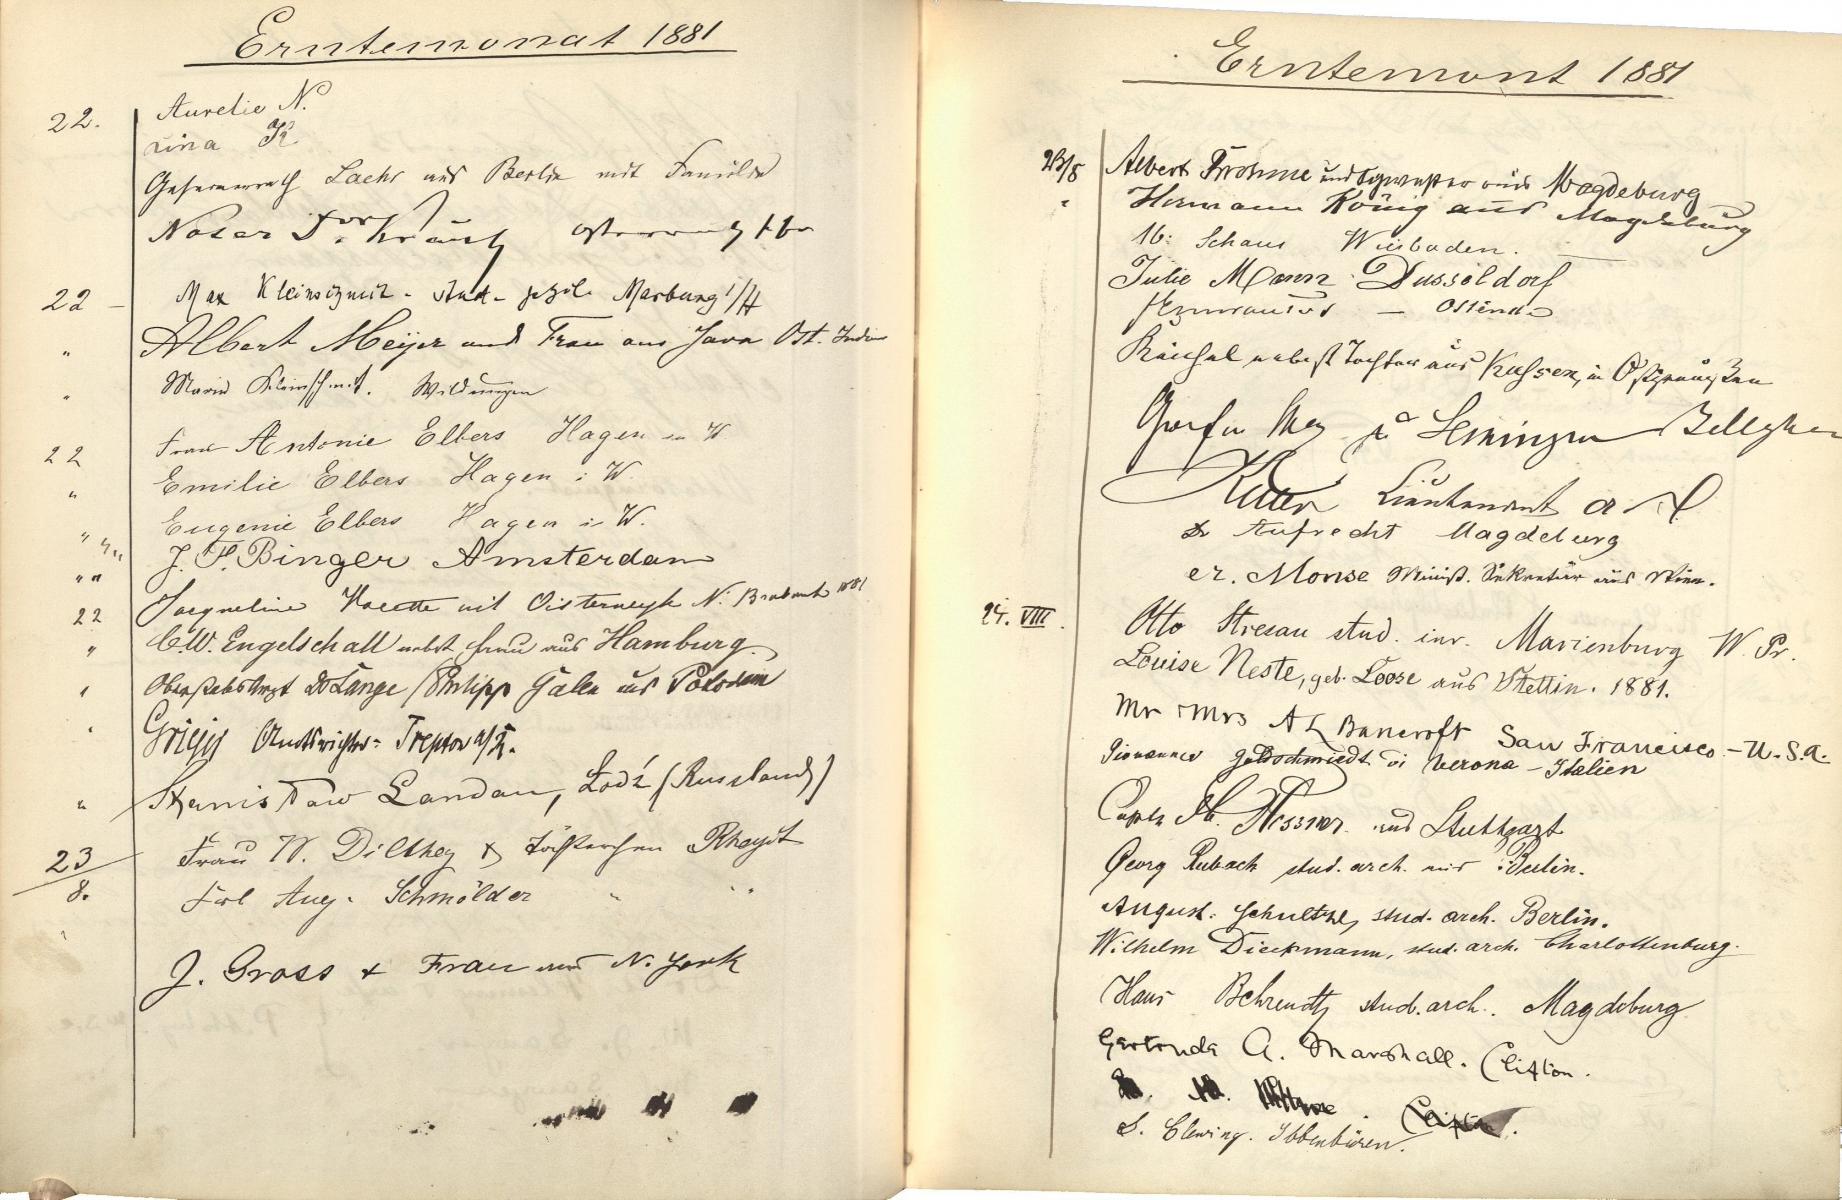 Erntemonat 1881
22. Aurelie N.
Lina K
Geheimerrath Laehr aus Berlin mit Familie
22 – Max Kleinschmit - stud. phil. Marburg i/H
" Albert Meijer und Frau aus Java Ost. Indien
" Marie Kleinschmit. Wildungen
22 Frau Antonie Elbers Hagen in W
" Emilie Elbers Hagen i. W.
" Eugenie Elbers Hagen i. W.
" " J. F. Binger Amsterdam
22 Jacqueline uit Oisterwyk N. Brabant 1881
" C. W. Engelschall nebst Frau aus Hamburg.
" Oberstabsarzt Dr Lange / Philipp Galen aus Potsdam
" Amtsrichter Treptow a/R.
" Stanisław Landau, Łodź (Russland)
23/8. Frau W. Dilthey & Töchterchen Rheydt
Frl Aug. Schmölder " "
J. Gross & Frau aus N. York
Erntemont 1881
23/8 Albert Frohme und Schwester aus Magdeburg
" Hermann König aus Magdeburg
Schaus Wiesbaden.
Julie Mann Dusseldorf
– Ostende
Reichel nebst Tochter aus in Ostpreußen
Ritter Lieutenant a D.
Dr Aufrecht Magdeburg
Dr. Monse Minist. Sekretär aus Wien.
24. VIII. Otto Stresau stud. iur. Marienburg W. Pr.
Louise Neste, geb. Loose aus Stettin. 1881.
Mr Mrs A L Bancroft San Francisco – U.S.A.
Giovanni Goldschmiedt di Verona – Italien
aus Stuttgart
Georg Rubach stud. arch. aus Berlin.
August. Schultze, stud. arch. Berlin.
Wilhelm Dieckmann, stud. arch. Charlottenburg.
Hans Behrendt, stud. arch. Magdeburg
Gertrude A. Marshall. Clifton.
Clifton.
S. Clewing. Ibbenbüren.